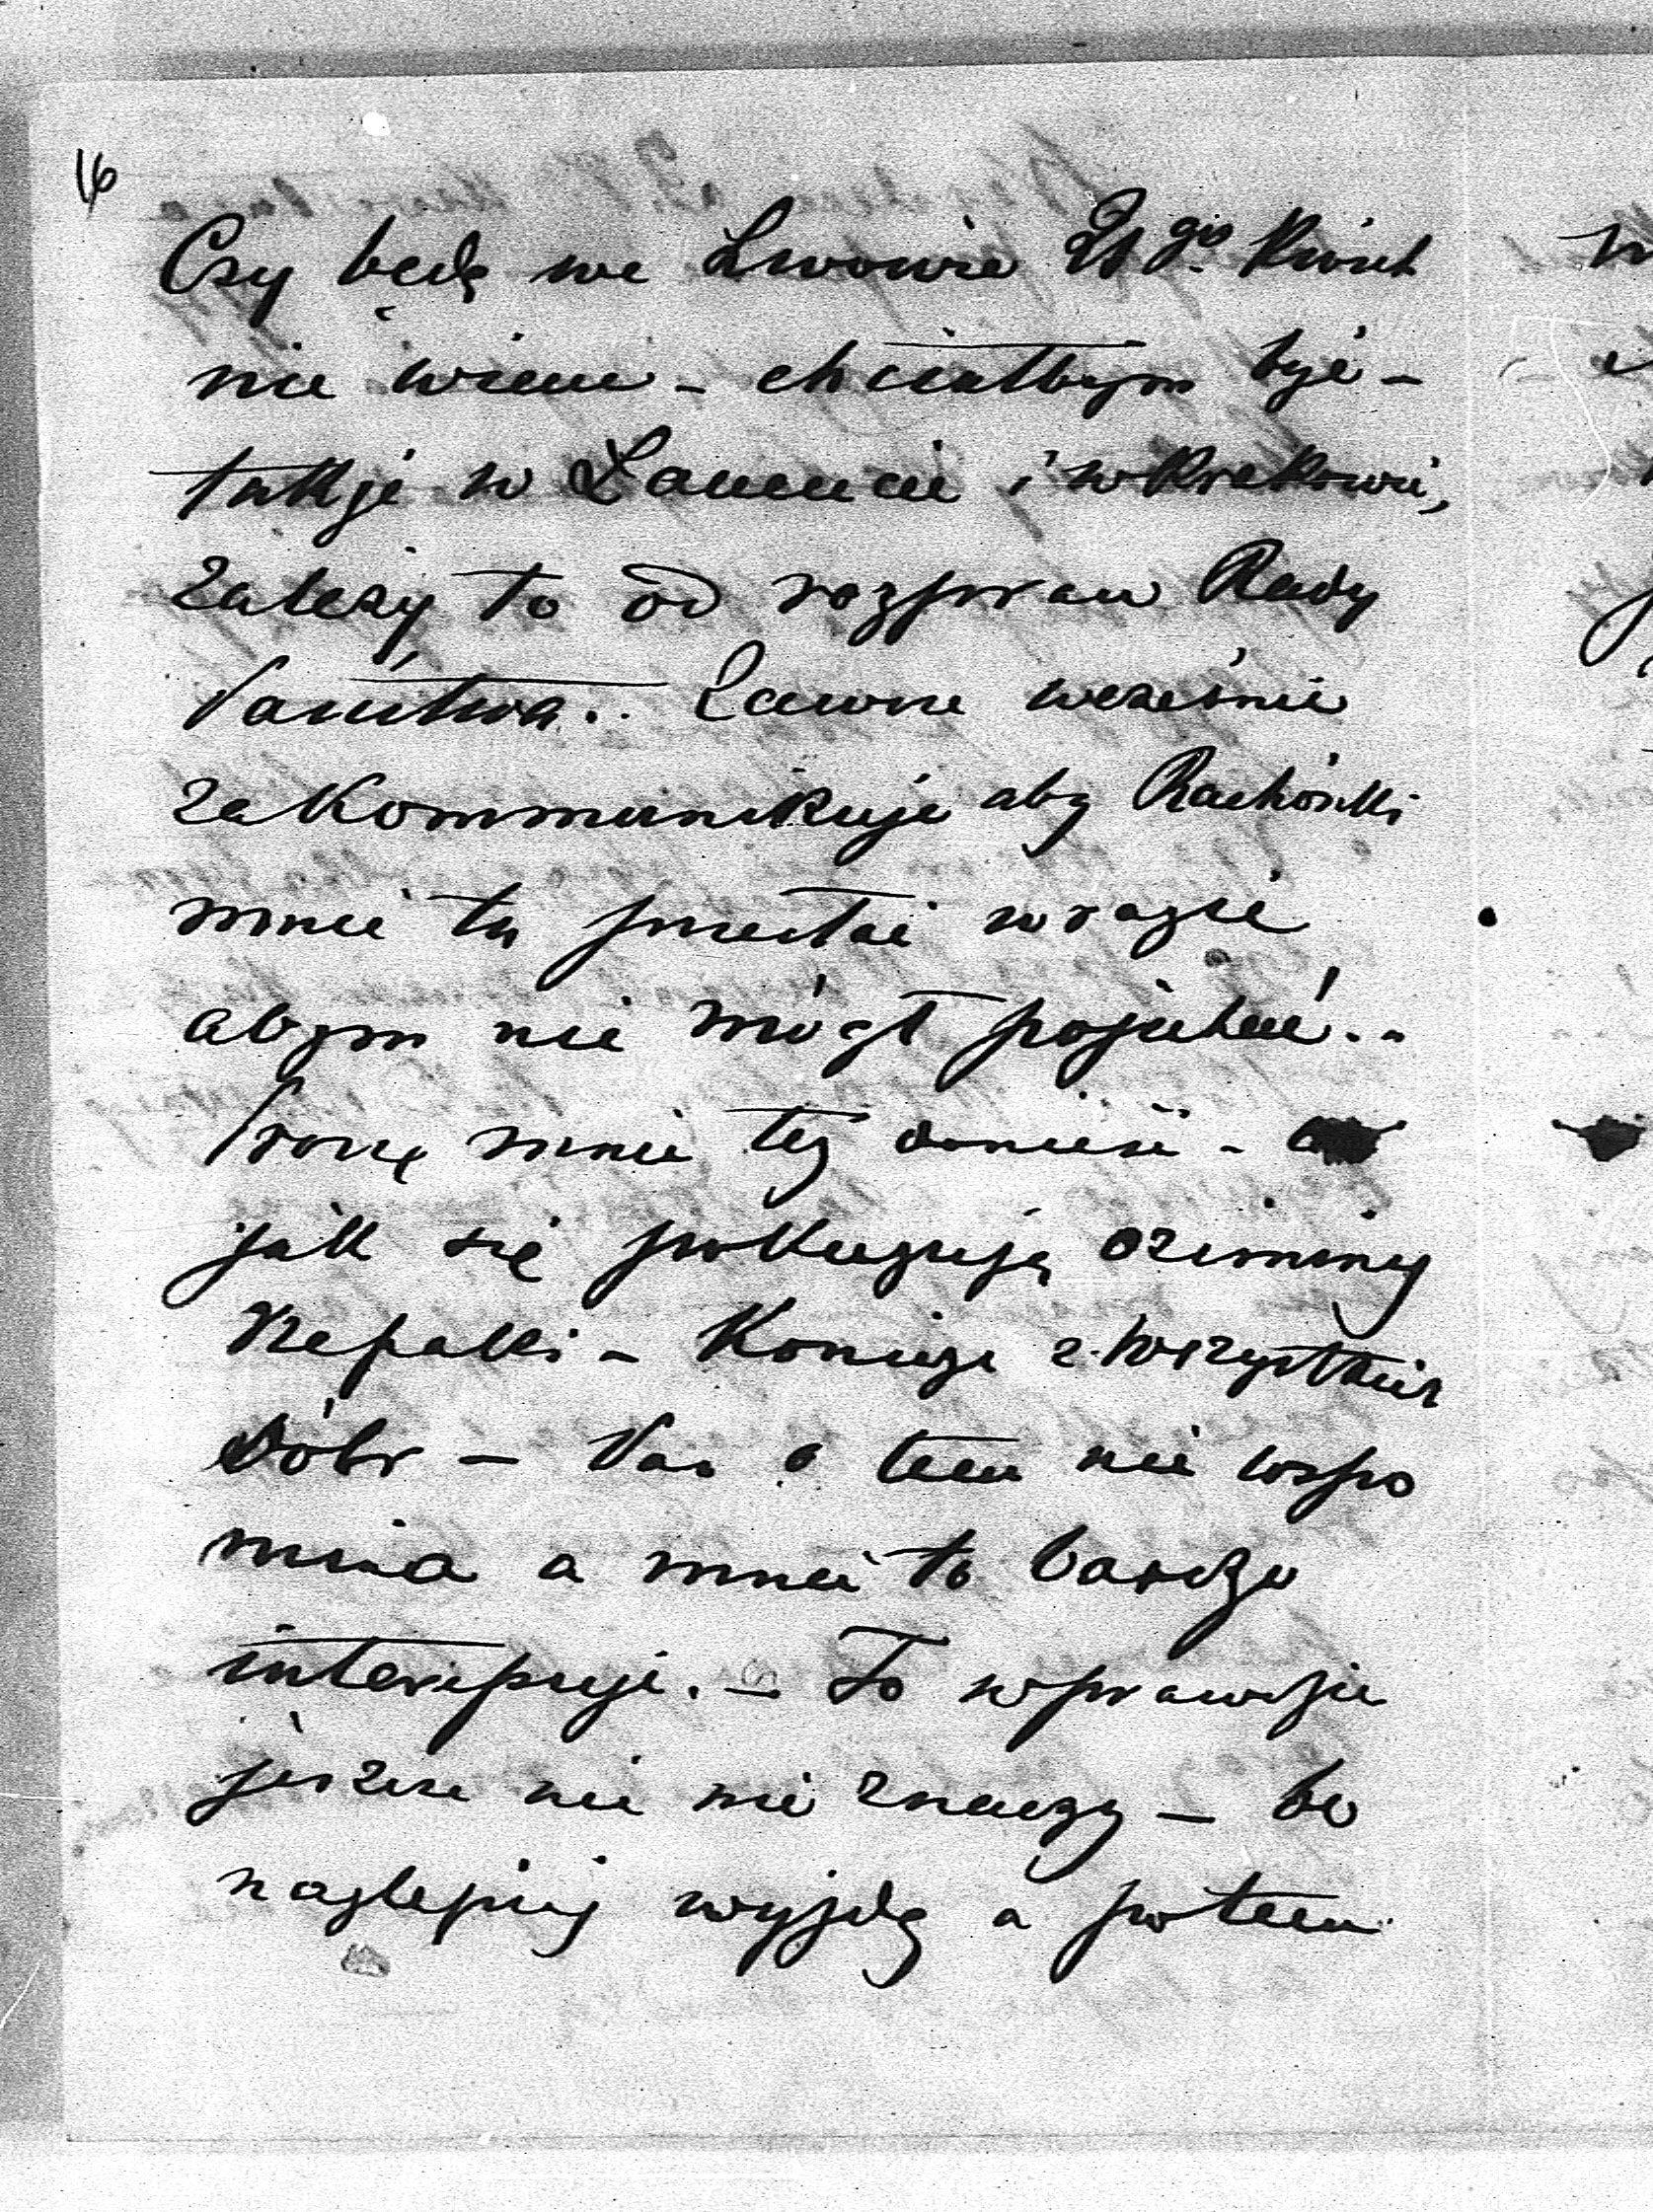 16
Czy będę we Lwowie 21go Kwiet
nie wiem – chciałbym być –
także w Łańcucie i w Krakowie,
zależy to od rozpraw Rady
Państwa.. Zawsze wcześnie
zakommunikuje aby Rachunki
mnie tu przesłać w razie
abym nie mógł pojechać..
Proszę mnie też donieść –
jak się pokazują oziminy
Rzepaki – Koniuze z wszystkich
dóbr – Pan o tem nie wspo
mina a mnie to bardzo
interesuje. – To wprawdzie
jeszcze nic nie znaczy – bo
najlepiej wyjdą a potem